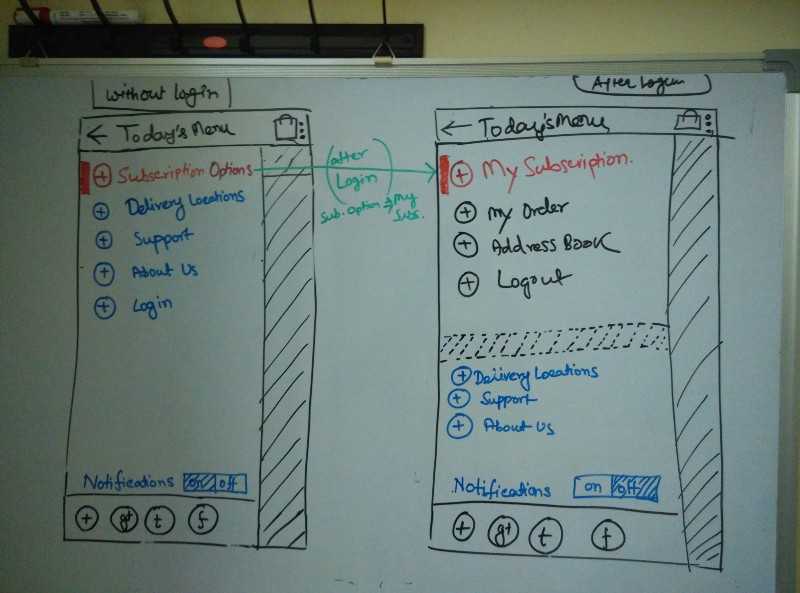 without login
← Today's Menu
+ Subscription Options
+ Delivery Locations
+ Support
+ About Us
+ Login
Notifications on off
+ g+ t f
(after
Login)
Sub. Option → My
Subs.
After Login
← Today's Menu
+ My Subscription.
+ My Order
+ Address Book
+ Logout
+ Delivery Locations
+ Support
+ About Us
Notifications on off
+ g+ t f